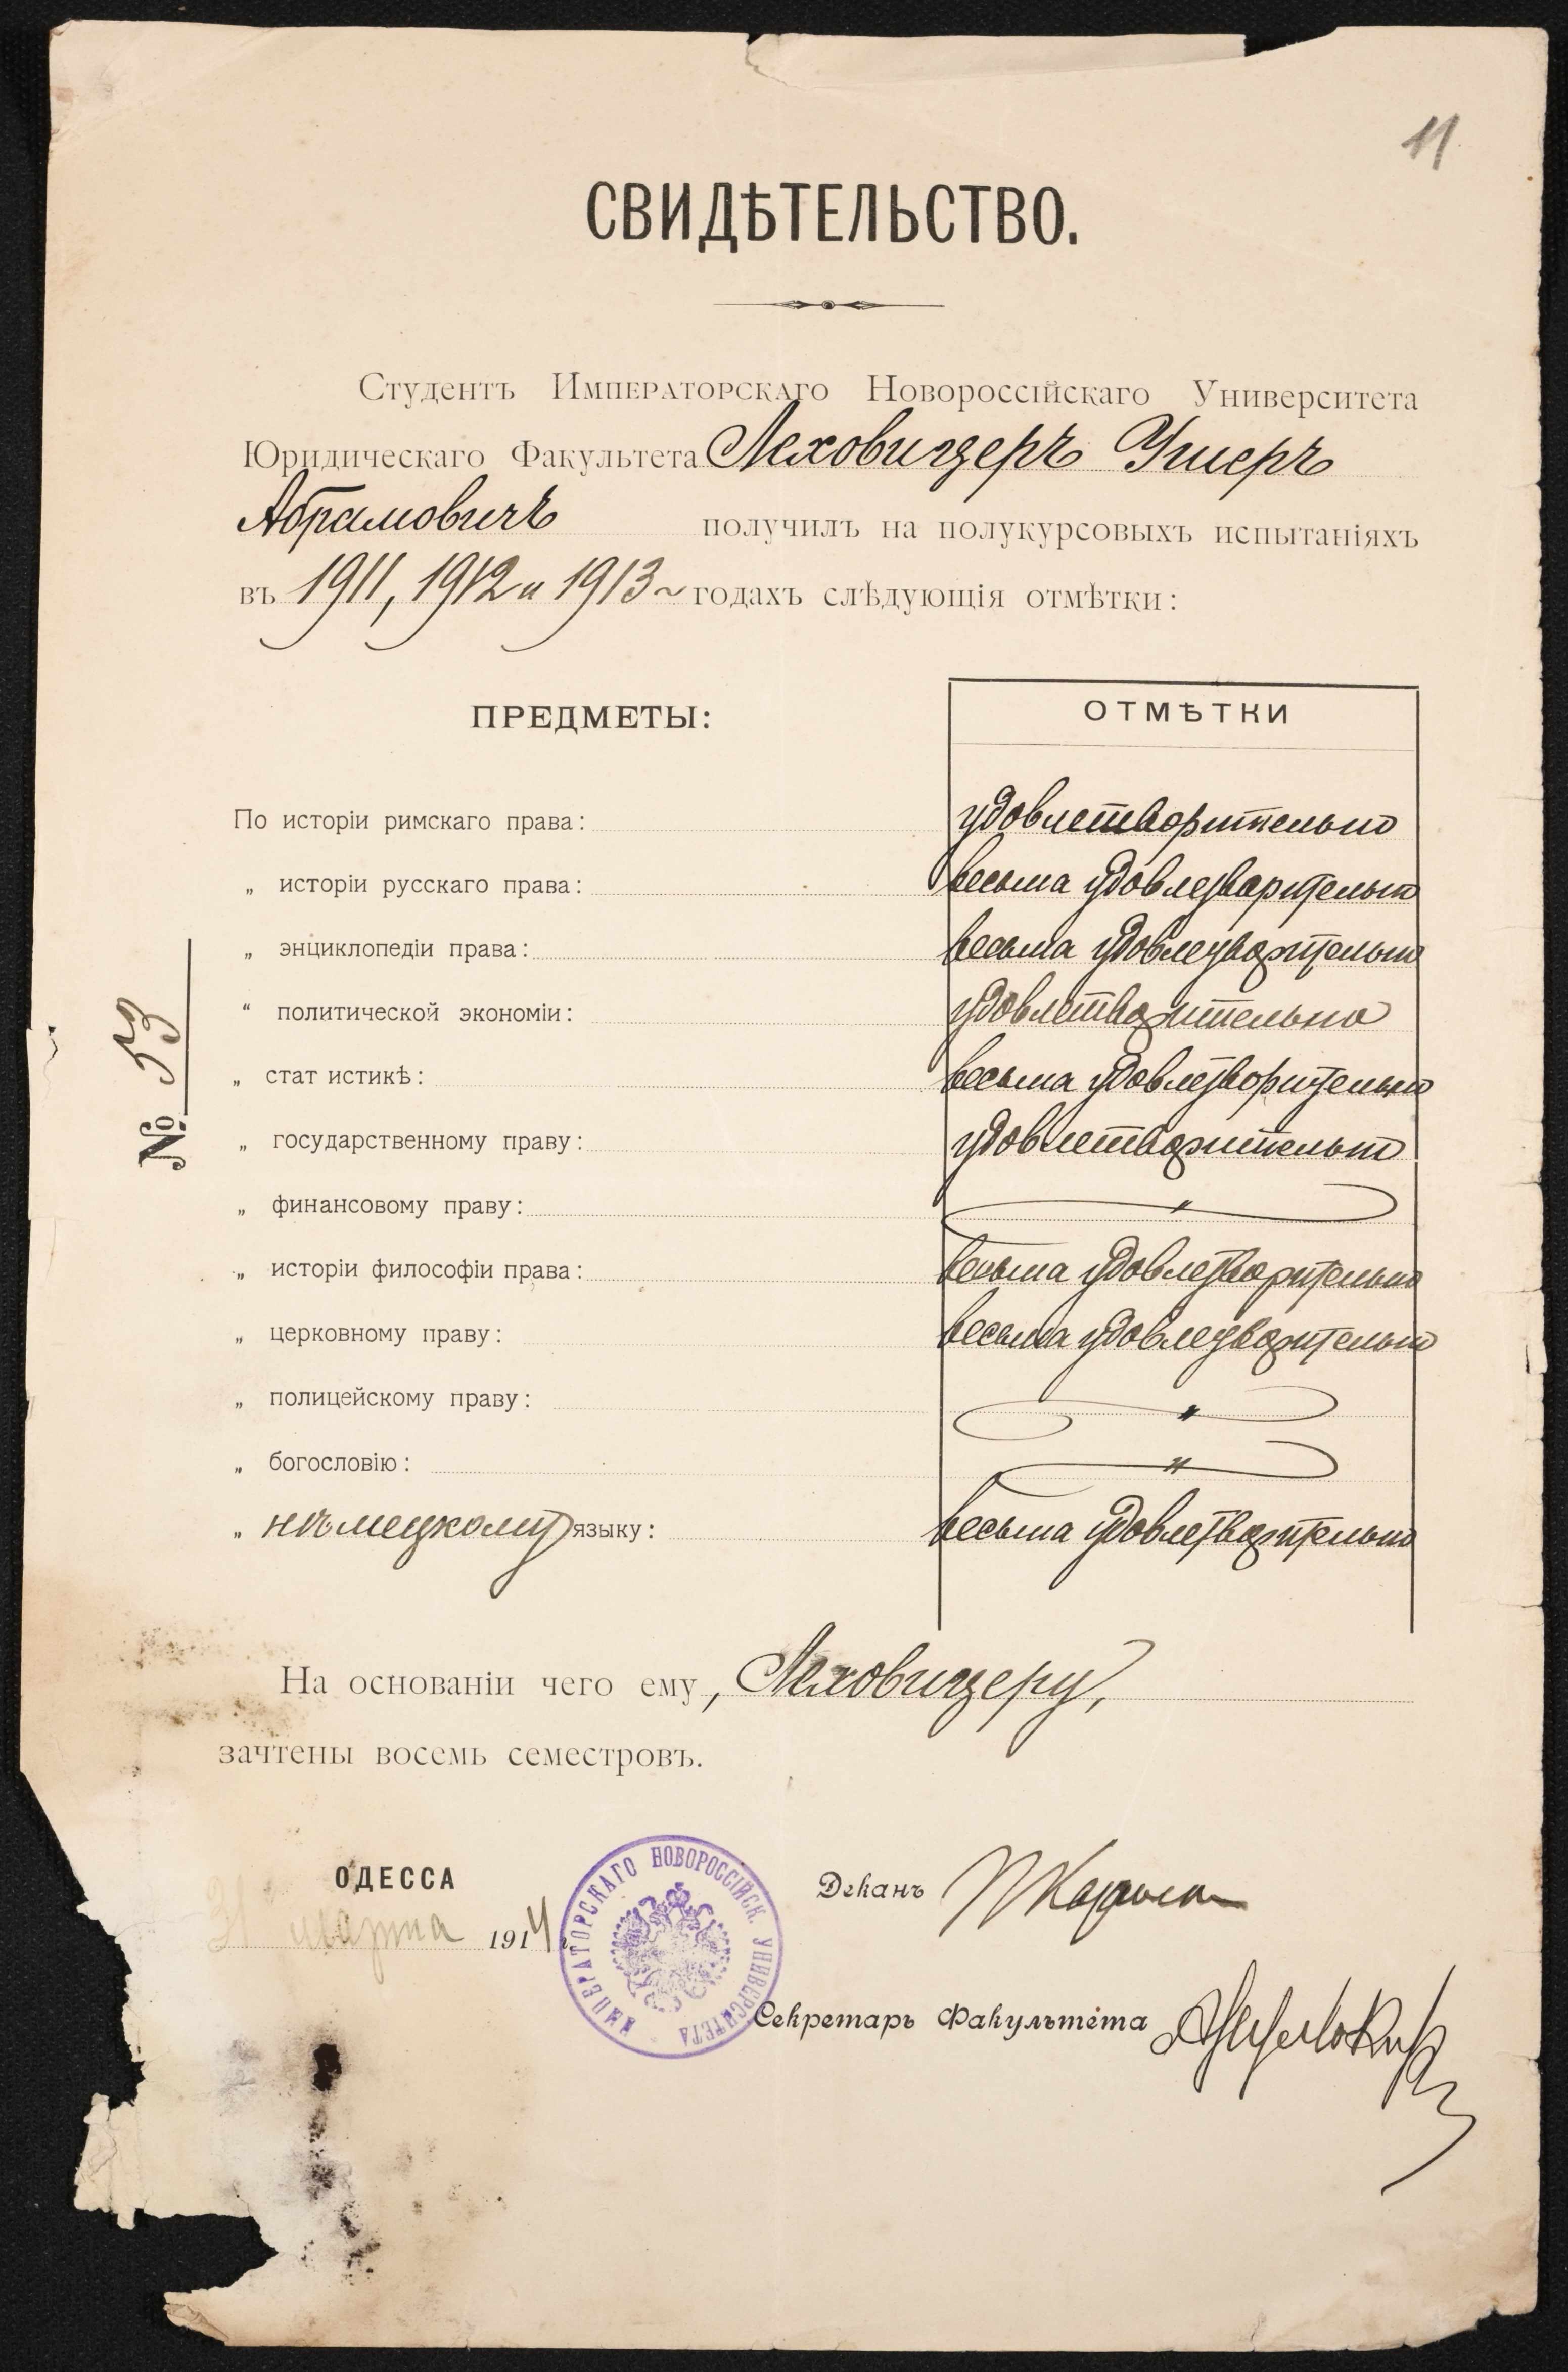 11
СВИДѢТЕЛЬСТВО.
Студентъ Императорскаго Новороссійскаго Университета
Юридическаго Факультета Леховицеръ Ушеръ
Абрамовичъ получилъ на полукурсовыхъ испытаніяхъ
въ 1911, 1912 и 1913 годахъ слѣдующія отмѣтки:
ПРЕДМЕТЫ: ОТМѢТКИ
По исторіи римскаго права: удовлетворительно
„ исторіи русскаго права: весьма удовлетворительно
„ энциклопедіи права: весьма удовлетворительно
“ политической экономіи: удовлетворительно
„ стат истикѣ: весьма удовлетворительно
„ государственному праву: удовлетворительно
„ финансовому праву: "
„ исторіи философіи права: весьма удовлетворительно
„ церковному праву: весьма удовлетворительно
„ полицейскому праву: "
„ богословію: "
„ нѣмецкому языку: весьма удовлетворительно
№ 53
На основаніи чего ему, Леховицеру,
зачтены восемь семестровъ.
ОДЕССА
марта 1914
ИМПЕРАТОРСКАГО НОВОРОССІЙСК. УНИВЕРСИТЕТА
Деканъ
Секретарь Факультета